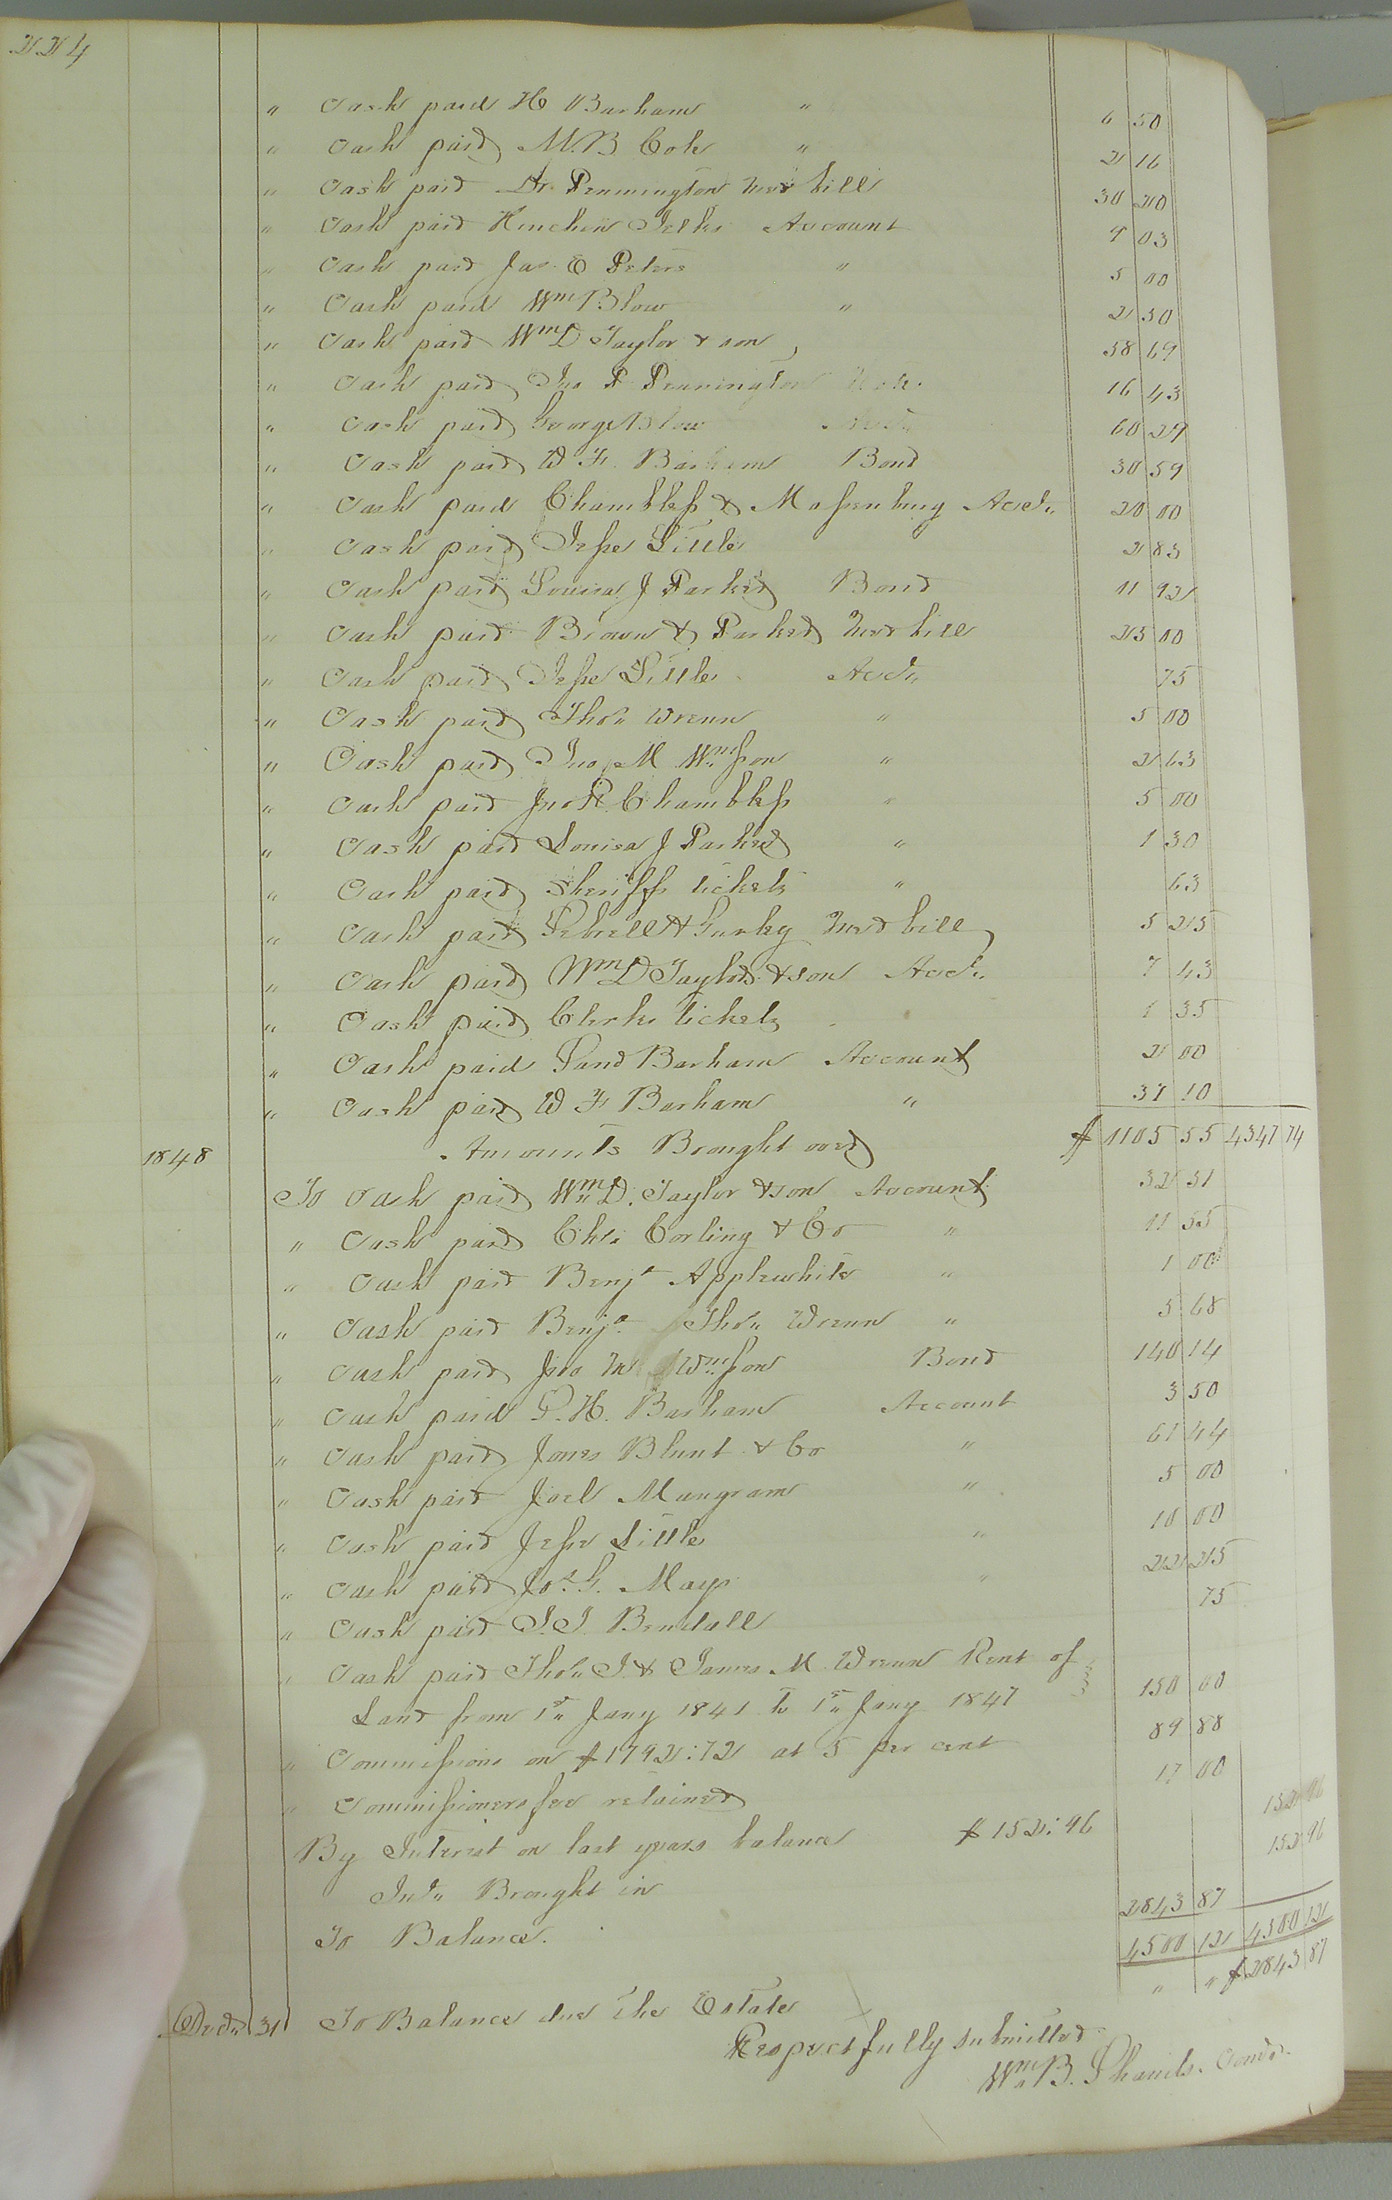 224
" Cash paid H Barham " 6 50
" Cash paid M. B Cole " 2 16
" Cash paid Dr Pennington Med bill 30 20
" Cash paid Hinchen Account 9 03
" Cash paid Jas. E Peters " 5 00
" Cash paid Wm Blow " 2 50
" Cash paid Wm D Taylor & son , 58 69
" Cash paid Jno P Pennington Note. 16 43
" Cash paid George Blow 60 29
" Cash paid W F. Barham Bond 30 59
" Cash paid Chambless & Massenburg Acct" 20 00
" Cash paid Jesse Little 2 83
" Cash paid Louisa J Parker Bond 11 92
" Cash paid Brown & Parker Med bill 25 00
" Cash paid Jesse Little Acct" 75
" Cash paid Tho" Wrenn " 5 00
" Cash paid Jno M Wmson " 2 63
" Cash paid Jno R Chambless " 5 00
" Cash paid Louisa J Parker " 1 30
" Cash paid Sheriffs tickets " 63
" Cash paid & Gurley Med bill 5 25
" Cash paid Wm D Taylor & son Acct" 7 43
" Cash paid Clerks tickets 1 35
" Cash paid Land Barham Account 2 00
" Cash paid W F Barham " 37 10
1848 Amounts Brought over $ 1105 55 4347 74
To Cash paid Wm D. Taylor & son Account 32 31
" Cash paid Chs Corling & Co " 11 55
" Cash paid Benja Applewhite " 1 00
" Cash paid Benja. Tho" Wrenn " 5 68
" Cash paid Jno M Wmson Bond 140 14
" Cash paid P. H. Barham Account 3 50
" Cash paid Jones Blunt & Co " 61 44
" Cash paid Joel Mangram " 5 00
" Cash paid Jesse Little " 10 00
" Cash paid Jos. G. Mays " 22 25
" Cash paid Bendall 75
" Cash paid Tho" J. & James M. Wrenn Rent of
Land from 1st Jany 1841 to 1st Jany 1847 150 00
" Commissions on $1792:72 at 5 per cent 89 88
" Commissioners fee retained 17 00
By Interest on last years balance $ 152:96 152 96
Int" Brought in 152 96
To Balance. 2843 87
4500 12 4500 12
Decr" 31 To Balance due the Estate " " $ 2843 87
Respectfully submitted
Wm B. Shands. Comr.